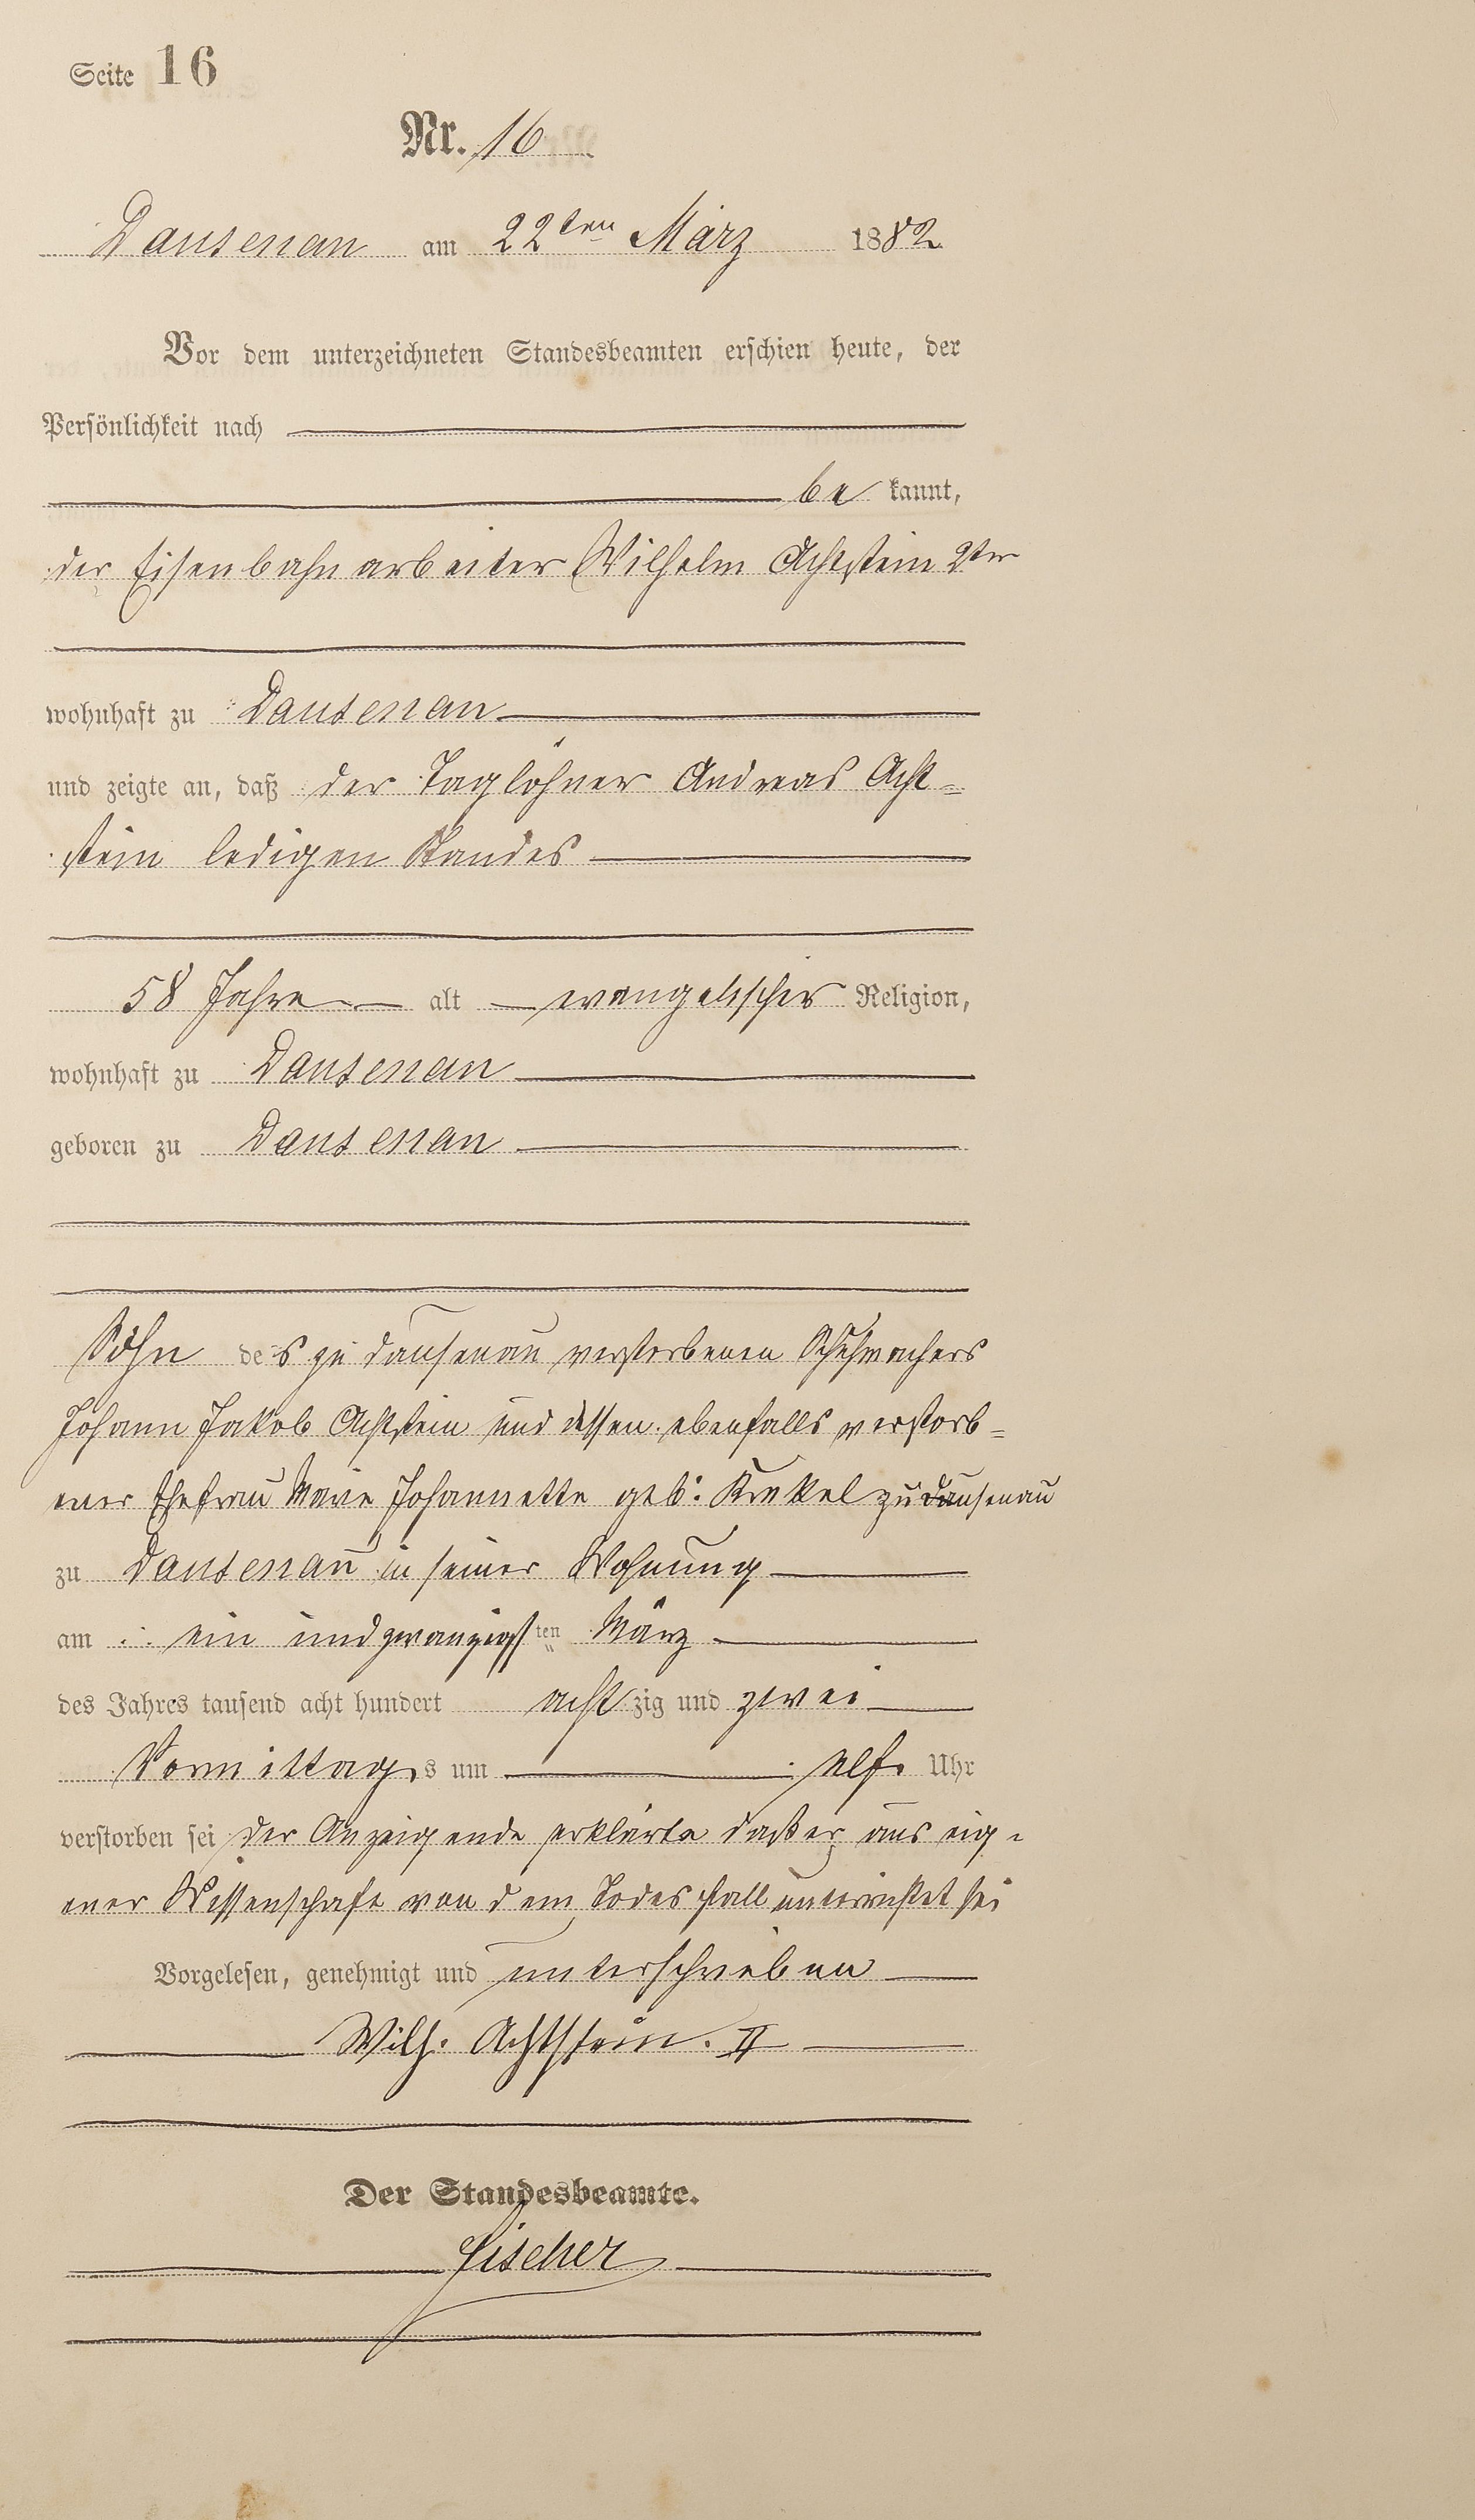 Seite 16
Nr. 16
Dausenau am 22ten März 1882
Vor dem unterzeichneten Standesbeamten erschien heute, der
Persönlichkeit nach
be kannt,
der Eisenbahnarbeiter Wilhelm Achtstein 2ter
wohnhaft zu Dausenau
und zeigte an, daß der Taglöhner Andreas Acht=
stein ledigen Standes
58 Jahre alt evangelischer Religion,
wohnhaft zu Dausenau
geboren zu Dausenau
Sohn des zu Dausenau verstorbenen Schuhmachers
Johann Jakob Achtstein und dessen ebenfalls verstorb=
ener Ehefrau Marie Johannette geb: Krekel zu Dausenau
zu Dausenau in seiner Wohnung
am ein und zwanzigsten März
des Jahres tausend acht hundert acht zig und zwei
Vormittags um elf Uhr
verstorben sei Der Anzeigende erklärte daß er aus eig=
ener Wissenschaft von dem Todesfall unterrichtet sei
Vorgelesen, genehmigt und unterschrieben
Wilh. Achtstein. II
Der Standesbeamte.
Fischer